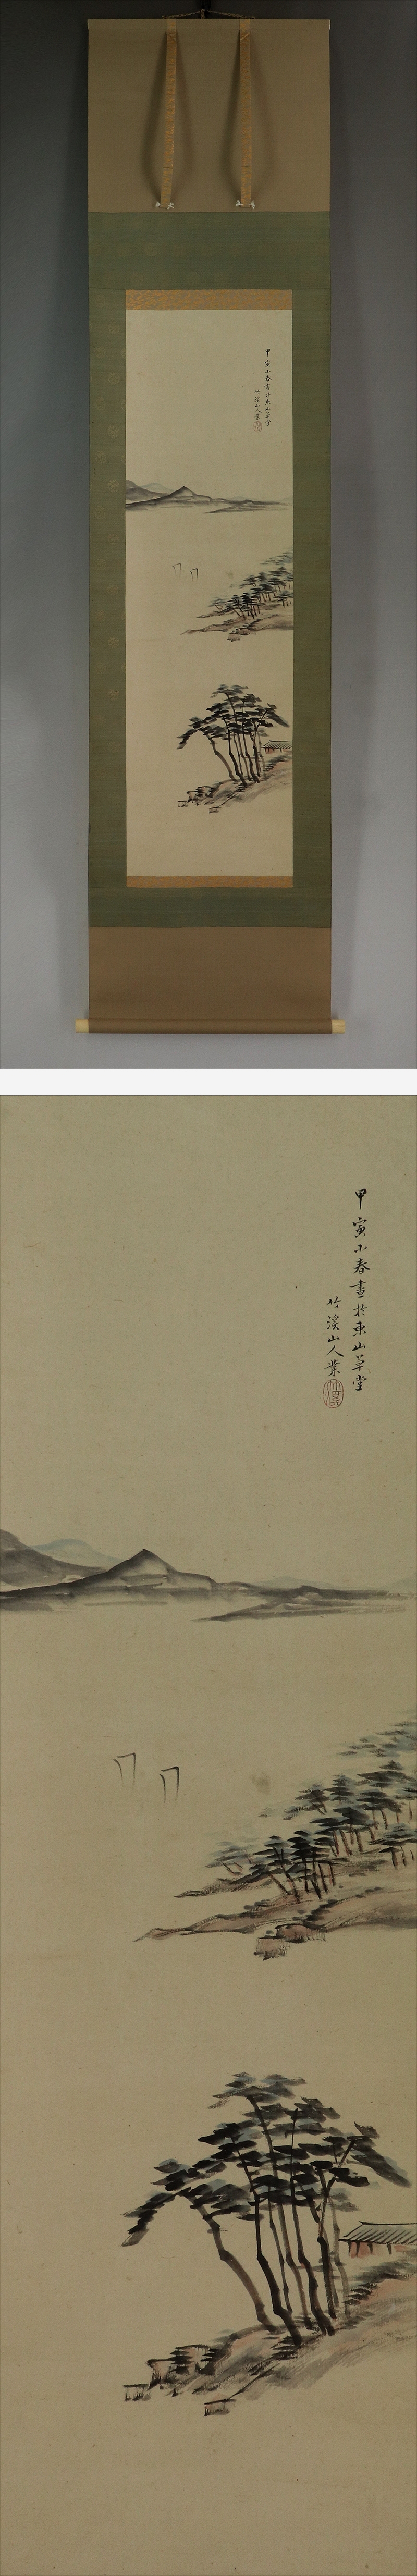 甲寅小春畫於東山草堂
竹溪山人業
甲寅小春畫於東山草堂
竹溪山人業